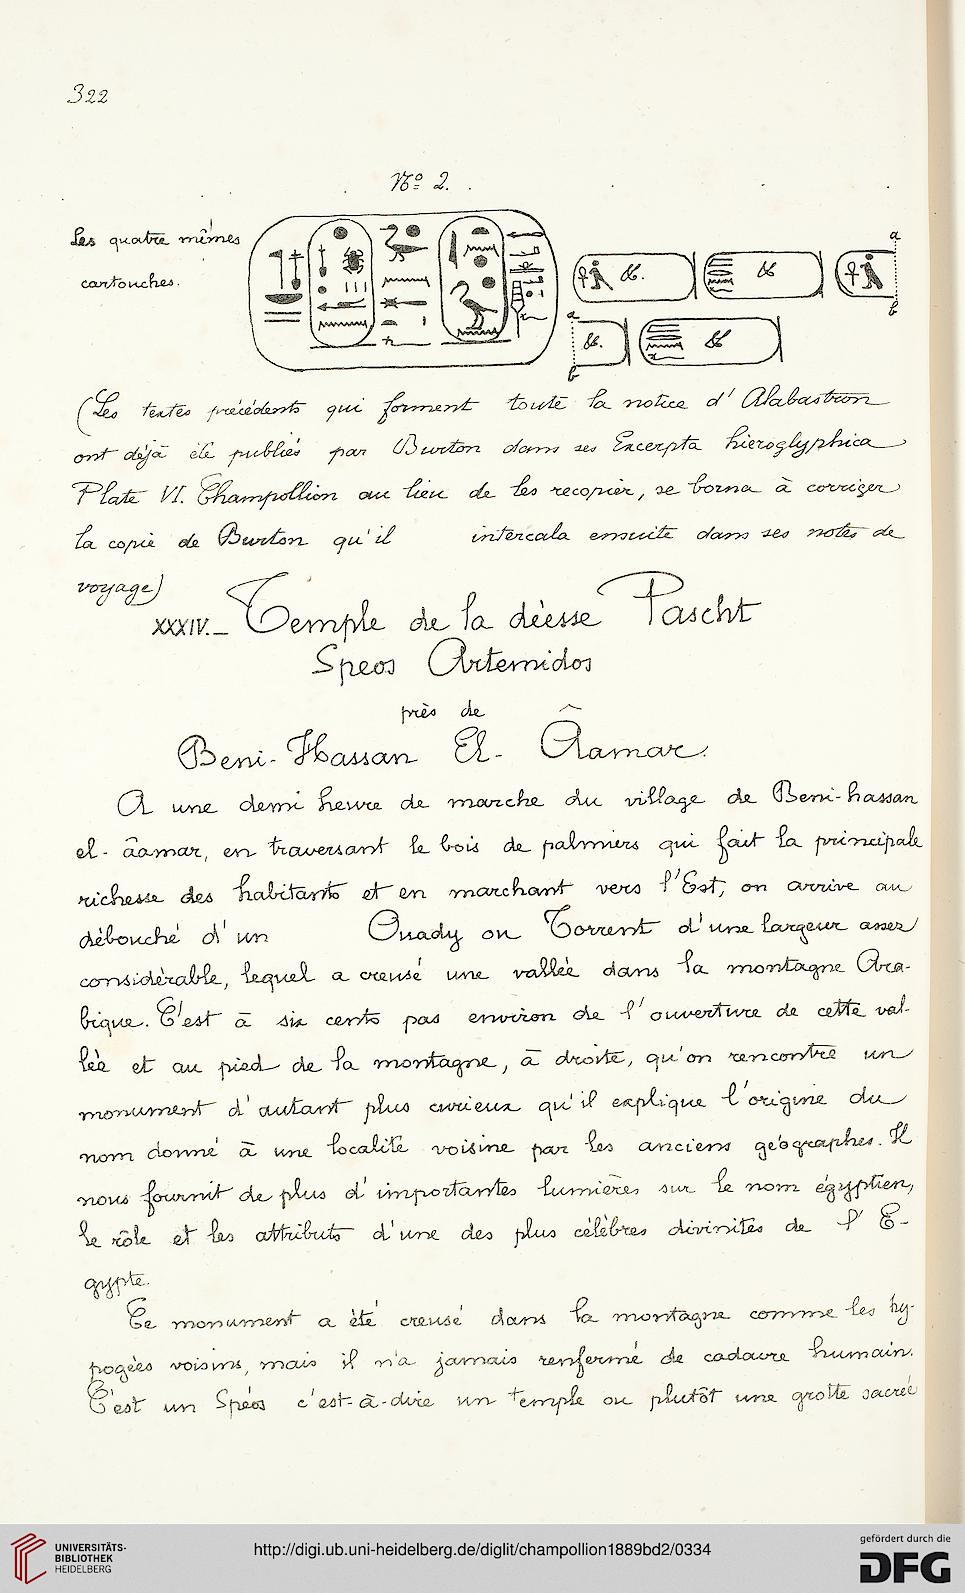 322
Nº 2.
Les quatre mêmes
cartouches.
&. & a
b
a
&. &
b
(Les textes précédents qui forment toute la notice d'Alabastron
ont déjà été publiés par Burton dans ses Excerpta hieroglyphica
Plate VI. Champollion au lieu de les recopier, se borna à corriger
la copie de Burton qu'il intercala ensuite dans ses notes de
voyage)
XXXIV._ Temple de la déesse Pascht
Speos Artemidos
près de
Beni-Hassan El-Âamar.
A une demi heure de marche du village de Beni-hassan
el-âamar, en traversant le bois de palmiers qui fait la principale
richesse des habitants et en marchant vers l'Est, on arrive au
débouché d'un Ouady ou Torrent d'une largeur assez
considérable, lequel a creusé une vallée dans la montagne Ara-
bique. C'est à six cents pas environ de l'ouverture de cette val-
lée et au pied de la montagne, à droite, qu'on rencontre un
monument d'autant plus curieux qu'il explique l'origine du
nom donné à une localité voisine par les anciens géographes. Il
nous fournit de plus d'importantes lumières sur le nom égyptien,
le rôle et les attributs d'une des plus célèbres divinités de l'E-
gypte.
Ce monument a été creusé dans la montagne comme les hy-
pogées voisins, mais il n'a jamais renfermé de cadavre humain.
C'est un Spéos c'est-à-dire un temple ou plutôt une grotte sacrée
UNIVERSITÄTS-
BIBLIOTHEK
HEIDELBERG
http://digi.ub.uni-heidelberg.de/diglit/champollion1889bd2/0334
gefördert durch die
DFG